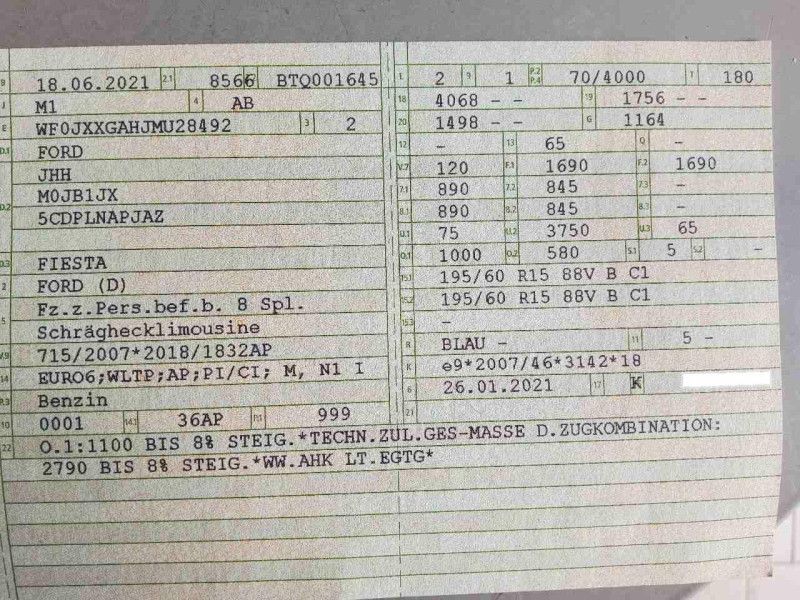 B 18.06.2021 2.1 8566 BTQ001645
J M1 4 AB
E WF0JXXGAHJMU28492 3 2
D.1 FORD
JHH
M0JB1JX
D.2 5CDPLNAPJAZ
D.3 FIESTA
2 FORD (D)
5 Fz.z.Pers.bef.b. 8 Spl.
Schräghecklimousine
V.9 715/2007*2018/1832AP
14 EURO6;WLTP;AP;PI/CI; M, N1 I
P.3 Benzin
10 0001 14.1 36AP P.1 999
22 O.1:1100 BIS 8% STEIG.*TECHN.ZUL.GES-MASSE D.ZUGKOMBINATION:
2790 BIS 8% STEIG.*WW.AHK LT.EGTG*
L 2 9 1 P.2 P.4 70/4000 T 180
18 4068 - - 19 1756 - -
20 1498 - - G 1164
12 - 13 65 Q -
V.7 120 F.1 1690 F.2 1690
7.1 890 7.2 845 7.3 -
8.1 890 8.2 845 8.3 -
U.1 75 U.2 3750 U.3 65
O.1 1000 O.2 580 S.1 5 S.2 -
15.1 195/60 R15 88V B C1
15.2 195/60 R15 88V B C1
15.3 -
R BLAU - 11 5 -
K e9*2007/46*3142*18
6 26.01.2021 17 K
21